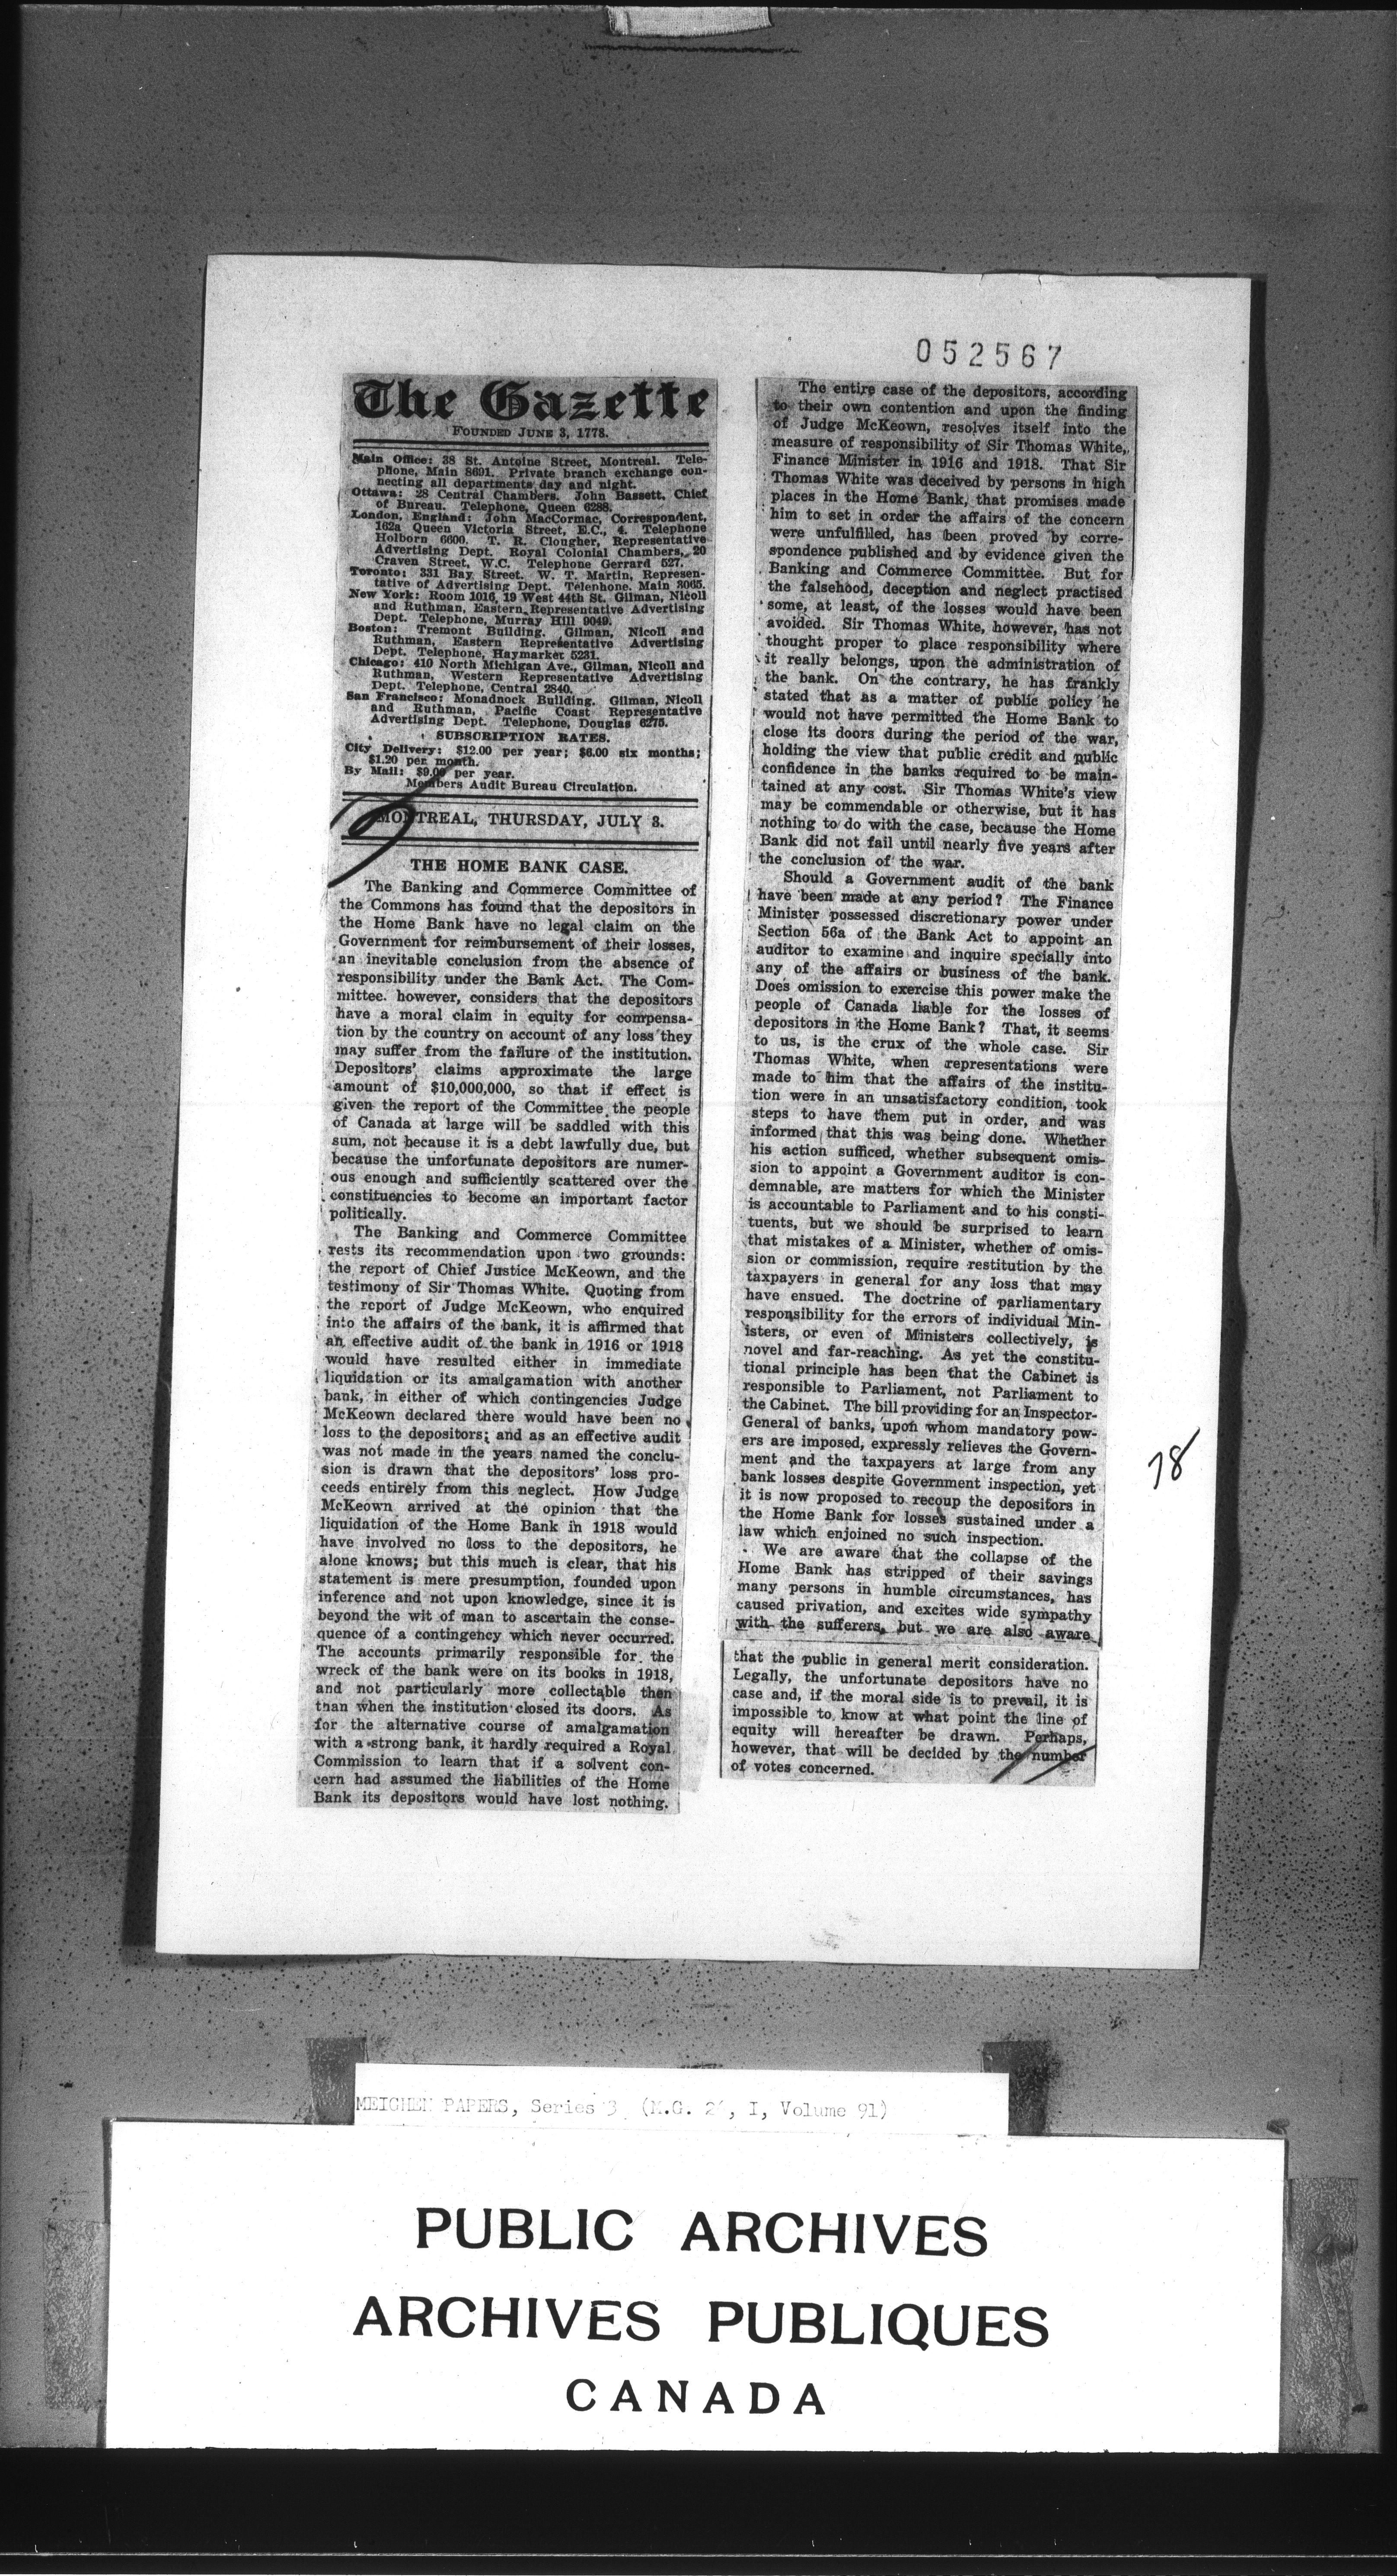 052567
The Gazette
FOUNDED JUNE 3, 1778.
Main Office: 38 St. Antoine Street, Montreal. Tele-
phone, Main 8691. Private branch exchange con-
necting all departments day and night.
Ottawa: 28 Central Chambers. John Bassett, Chief
of Bureau. Telephone, Queen 6288.
London, England: John MacCormac, Correspondent,
162a Queen Victoria Street, E.C., 4. Telephone
Holborn 6600. T. R. Clougher, Representative
Advertising Dept. Royal Colonial Chambers, 20
Craven Street, W.C. Telephone Gerrard 527.
Toronto: 331 Bay Street. W. T. Martin, Represen-
tative of Advertising Dept. Telephone. Main 3065.
New York: Room 1016, 19 West 44th St. Gilman, Nicoll
and Ruthman, Eastern Representative Advertising
Dept. Telephone, Murray Hill 9049.
Boston: Tremont Building. Gilman, Nicoll and
Ruthman, Eastern Representative Advertising
Dept. Telephone, Haymarker 5231.
Chicago: 410 North Michigan Ave., Gilman, Nicoll and
Ruthman, Western Representative Advertising
Dept. Telephone, Central 2840.
San Francisco: Monadnock Building. Gilman, Nicoll
and Ruthman, Pacific Coast Representative
Advertising Dept. Telephone, Douglas 6275.
SUBSCRIPTION RATES.
City Delivery: $12.00 per year; $6.00 six months;
$1.20 per month.
By Mail: $9.00 per year.
Members Audit Bureau Circulation.
MONTREAL, THURSDAY, JULY 3.
THE HOME BANK CASE.
The Banking and Commerce Committee of
the Commons has found that the depositors in
the Home Bank have no legal claim on the
Government for reimbursement of their losses,
an inevitable conclusion from the absence of
responsibility under the Bank Act. The Com-
mittee. however, considers that the depositors
have a moral claim in equity for compensa-
tion by the country on account of any loss they
may suffer from the failure of the institution.
Depositors' claims approximate the large
amount of $10,000,000, so that if effect is
given the report of the Committee the people
of Canada at large will be saddled with this
sum, not because it is a debt lawfully due, but
because the unfortunate depositors are numer-
ous enough and sufficiently scattered over the
constituencies to become an important factor
politically.
The Banking and Commerce Committee
rests its recommendation upon two grounds:
the report of Chief Justice McKeown, and the
testimony of Sir Thomas White. Quoting from
the report of Judge McKeown, who enquired
into the affairs of the bank, it is affirmed that
an effective audit of the bank in 1916 or 1918
would have resulted either in immediate
liquidation or its amalgamation with another
bank, in either of which contingencies Judge
McKeown declared there would have been no
loss to the depositors; and as an effective audit
was not made in the years named the conclu-
sion is drawn that the depositors' loss pro-
ceeds entirely from this neglect. How Judge
McKeown arrived at the opinion that the
liquidation of the Home Bank in 1918 would
have involved no loss to the depositors, he
alone knows; but this much is clear, that his
statement is mere presumption, founded upon
inference and not upon knowledge, since it is
beyond the wit of man to ascertain the conse-
quence of a contingency which never occurred.
The accounts primarily responsible for the
wreck of the bank were on its books in 1918,
and not particularly more collectable then
than when the institution closed its doors. As
for the alternative course of amalgamation
with a strong bank, it hardly required a Royal
Commission to learn that if a solvent con-
cern had assumed the liabilities of the Home
Bank its depositors would have lost nothing.
The entire case of the depositors, according
to their own contention and upon the finding
of Judge McKeown, resolves itself into the
measure of responsibility of Sir Thomas White,
Finance Minister in 1916 and 1918. That Sir
Thomas White was deceived by persons in high
places in the Home Bank, that promises made
him to set in order the affairs of the concern
were unfulfilled, has been proved by corre-
spondence published and by evidence given the
Banking and Commerce Committee. But for
the falsehood, deception and neglect practised
some, at least, of the losses would have been
avoided. Sir Thomas White, however, has not
thought proper to place responsibility where
it really belongs, upon the administration of
the bank. On the contrary, he has frankly
stated that as a matter of public policy he
would not have permitted the Home Bank to
close its doors during the period of the war,
holding the view that public credit and public
confidence in the banks required to be main-
tained at any cost. Sir Thomas White's view
may be commendable or otherwise, but it has
nothing to do with the case, because the Home
Bank did not fail until nearly five years after
the conclusion of the war.
Should a Government audit of the bank
have been made at any period? The Finance
Minister possessed discretionary power under
Section 56a of the Bank Act to appoint an
auditor to examine and inquire specially into
any of the affairs or business of the bank.
Does omission to exercise this power make the
people of Canada liable for the losses of
depositors in the Home Bank? That, it seems
to us, is the crux of the whole case. Sir
Thomas White, when representations were
made to him that the affairs of the institu-
tion were in an unsatisfactory condition, took
steps to have them put in order, and was
informed that this was being done. Whether
his action sufficed, whether subsequent omis-
sion to appoint a Government auditor is con-
demnable, are matters for which the Minister
is accountable to Parliament and to his consti-
tuents, but we should be surprised to learn
that mistakes of a Minister, whether of omis-
sion or commission, require restitution by the
taxpayers in general for any loss that may
have ensued. The doctrine of parliamentary
responsibility for the errors of individual Min-
isters, or even of Ministers collectively, is
novel and far-reaching. As yet the constitu-
tional principle has been that the Cabinet is
responsible to Parliament, not Parliament to
the Cabinet. The bill providing for an Inspector-
General of banks, upon whom mandatory pow-
ers are imposed, expressly relieves the Govern-
ment and the taxpayers at large from any
bank losses despite Government inspection, yet
it is now proposed to recoup the depositors in
the Home Bank for losses sustained under a
law which enjoined no such inspection.
We are aware that the collapse of the
Home Bank has stripped of their savings
many persons in humble circumstances, has
caused privation, and excites wide sympathy
with the sufferers, but we are also aware
that the public in general merit consideration.
Legally, the unfortunate depositors have no
case and, if the moral side is to prevail, it is
impossible to know at what point the line of
equity will hereafter be drawn. Perhaps,
however, that will be decided by the number
of votes concerned.
78
MEIGHEN PAPERS, Series 3 (M.G. 2 , I, Volume 91)
PUBLIC ARCHIVES
ARCHIVES PUBLIQUES
CANADA